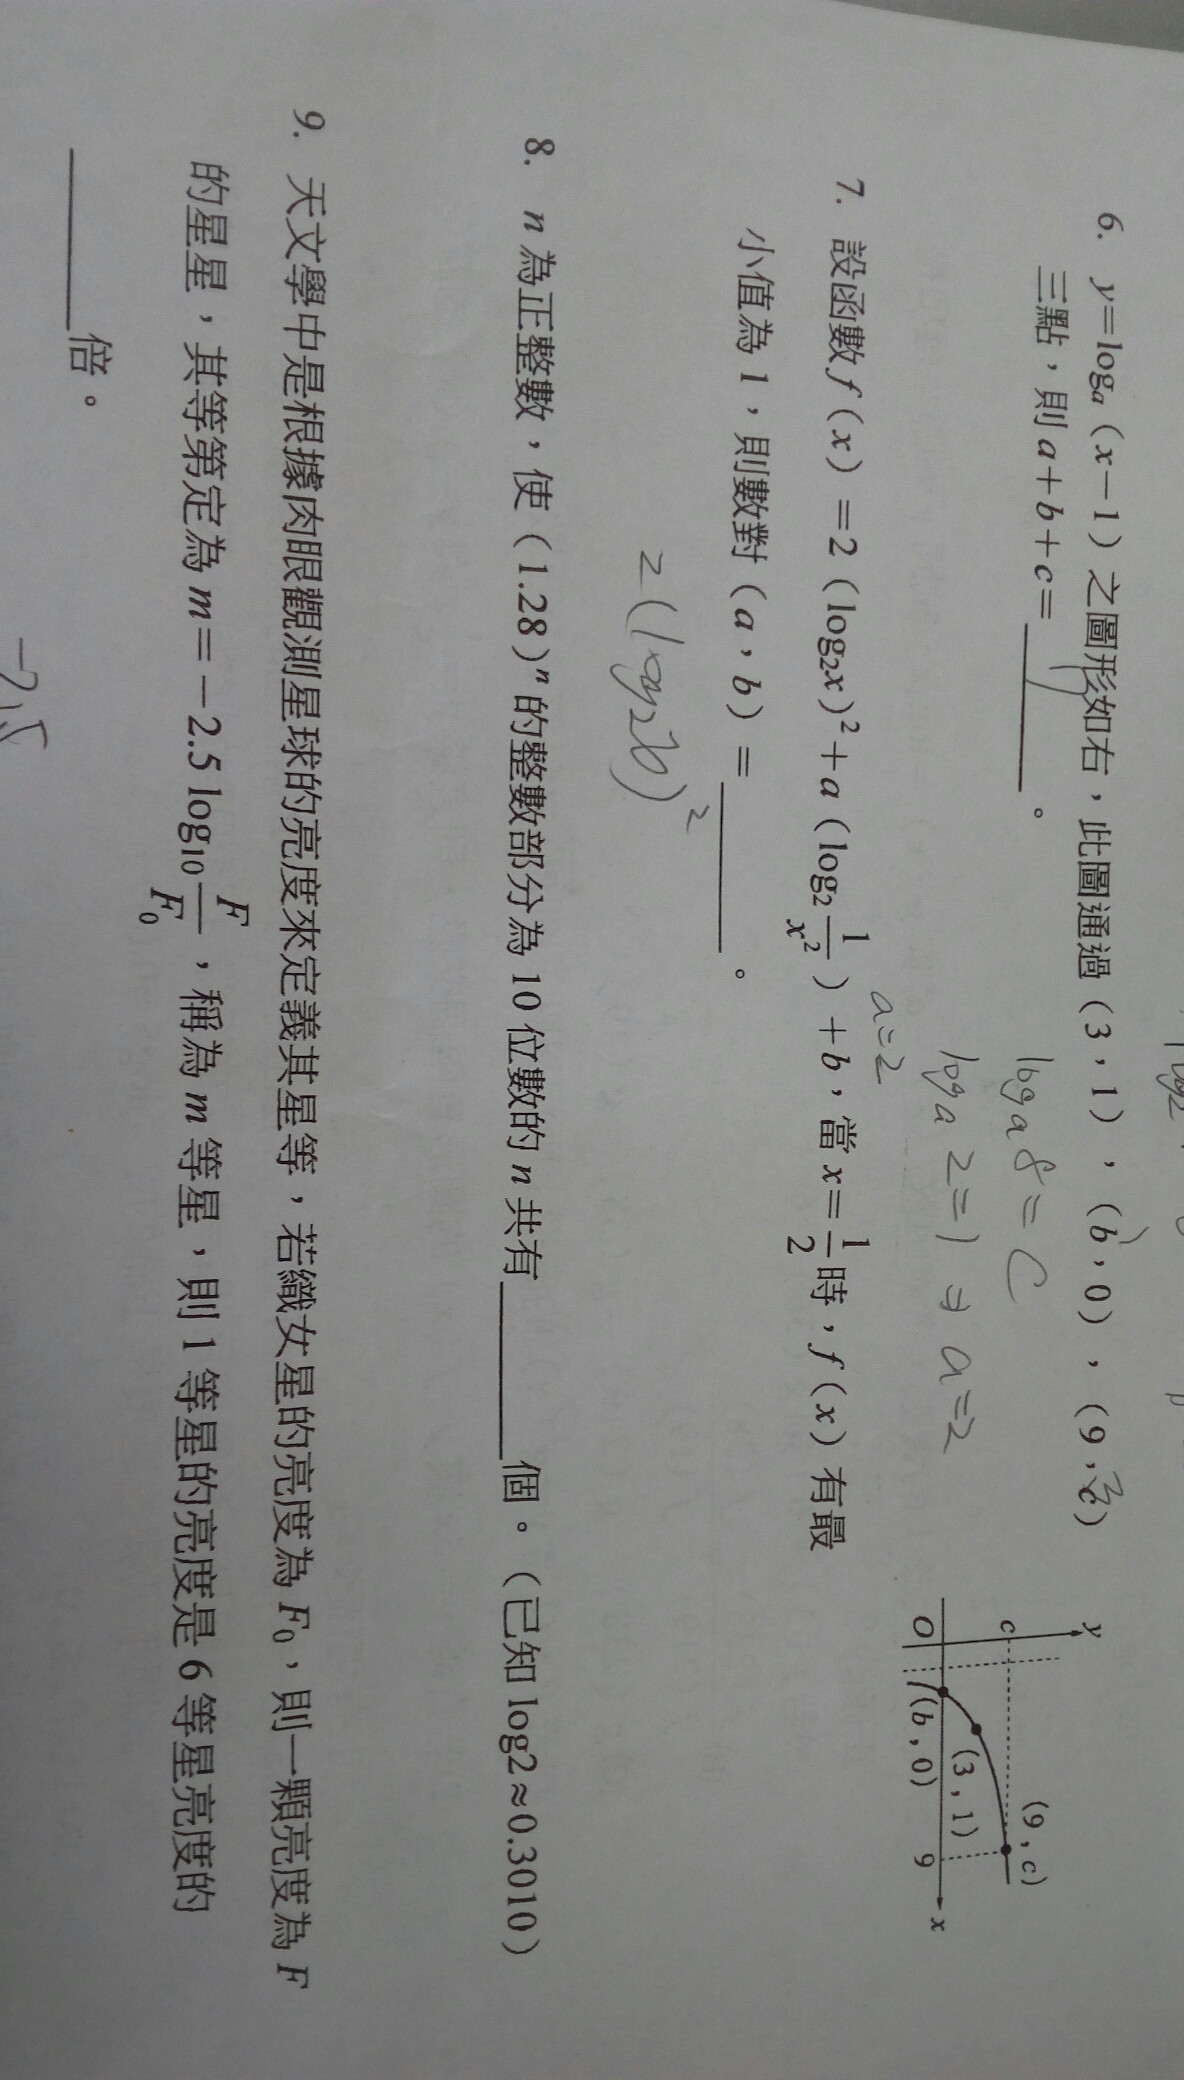 6. y=logₐ（x−1）之圖形如右，此圖通過（3，1），（b，0），（9，c）
三點，則a+b+c=________。
log a 8 = C
log a 2=1 ⇒ a=2
a=2
y
c
O
(b，0)
(3，1)
(9，c)
9
x
7. 設函數f（x）=2（log₂x）²+a（log₂ 1/x²）+b，當x=1/2時，f（x）有最
小值為1，則數對（a，b）=________。
8. n為正整數，使（1.28）ⁿ的整數部分為10位數的n共有________個。（已知log2≈0.3010）
9. 天文學中是根據肉眼觀測星球的亮度來定義其星等，若織女星的亮度為F₀，則一顆亮度為F
的星星，其等第定為m=−2.5 log₁₀ F/F₀，稱為m等星，則1等星的亮度是6等星亮度的
________倍。